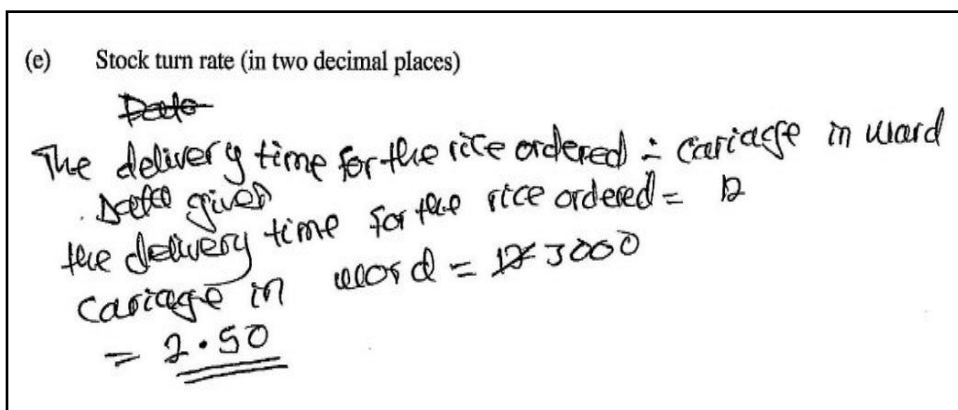 (e) Stock turn rate (in two decimal places)
Date
The delivery time for the rice ordered ÷ cariage in ward
Date given
the delivery time for the rice ordered = 12
cariage in word = 12 3000
= 2.50